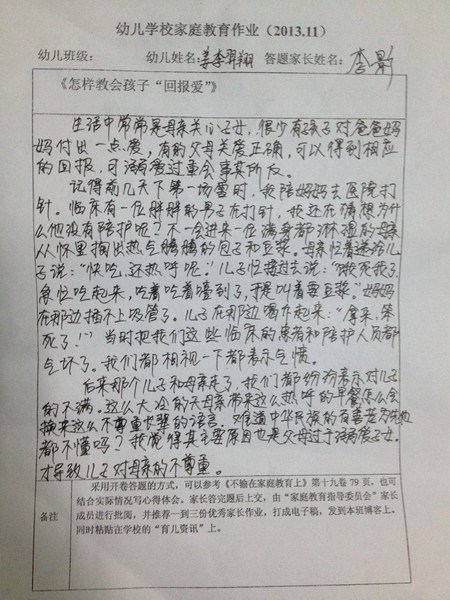 幼儿学校家庭教育作业（2013.11）
幼儿班级： 幼儿姓名：姜李翔 答题家长姓名：李影
《怎样教会孩子“回报爱”》
生活中常常是母亲关心子女，很少有孩子对爸爸妈
妈付出一点爱，有的父母关爱正确，可以得到相应
的回报，可溺爱过重会事其所反。
记得前几天下第一场雪时，我陪妈妈去医院打
针。临床有一位胖胖的男子在打针，我还在猜想为什
么他没有陪护呢？不一会进来一位满身都淋湿的母亲
从怀里掏出热气腾腾的包子和豆浆。母亲忙着递给儿
子说：“快吃，还热呼呢。”儿子忙接过去说：“饿死我了，
急忙吃起来，吃着吃着噎到了，于是叫着要豆浆。”妈妈
在那边插不上吸管了。儿子在那边喝斥起来：“拿来，笨
死了！” 当时把我们这些临床的患者和陪护人员都
气坏了。我们都相视一下都表示气愤。
后来那个儿子和母亲走了，我们都纷纷表示对儿子
的不满。这么大冷的天母亲带来这么热呼的早餐怎么会
换来这么不尊重长辈的语言。难道中华民族的百善孝为先他
都不懂吗？我觉得其主要原因也是父母过于溺爱子女。
才导致儿子对母亲的不尊重。
采用开卷答题的方式，可以参考《不输在家庭教育上》第十九卷 79 页，也可
结合实际情况写心得体会。家长答完题后上交，由“家庭教育指导委员会”家长
备注 成员进行批阅，并推荐一到三份优秀家长作业，打成电子稿，发到本班博客上。
同时粘贴在学校的“育儿资讯”上。